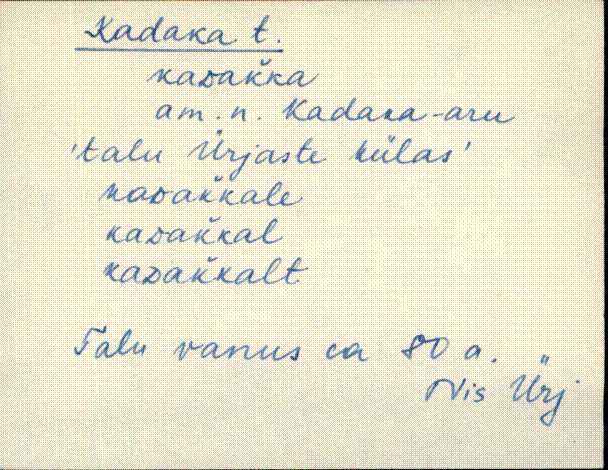 Kadaka t.
kaᴅak̆ka
am. n. Kadaka-aru
'talu Ürjaste külas'
kaᴅak̆kale
kaᴅak̆kal
kaᴅak̆kalt
Talu vanus ca 80 a.
Nis Ürj